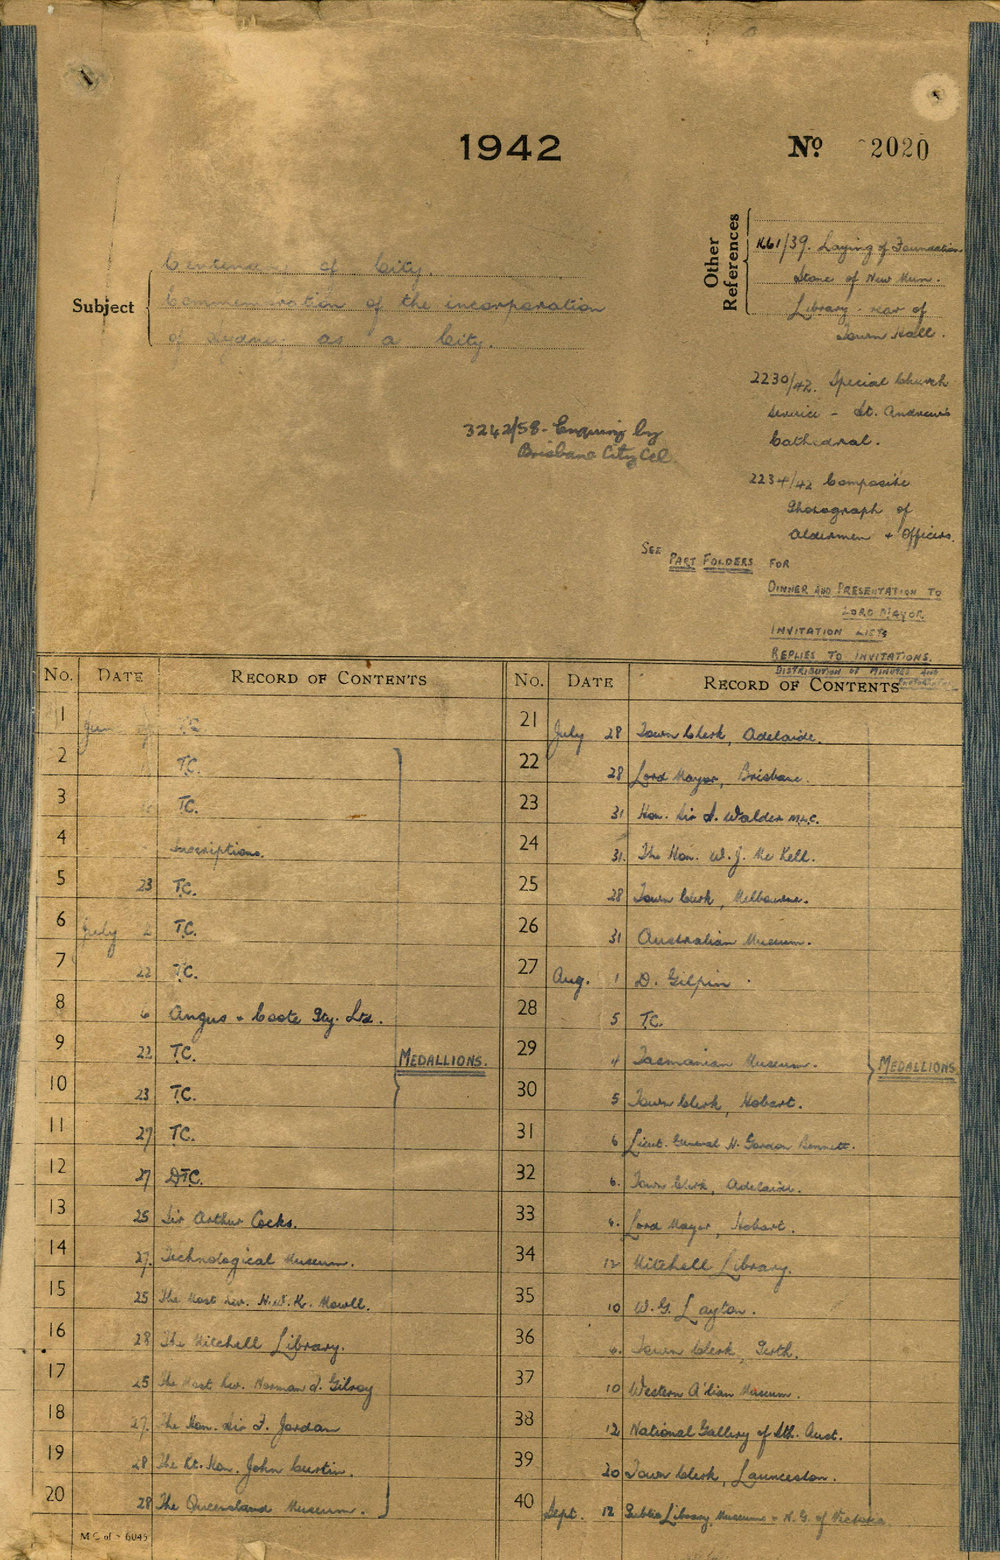 1942
No. 2020
Other References
K61/39. Laying of Foundation
Stone of New Mun.
Library - rear of
Town Hall.
Subject
Centenary of City.
Commemoration of the incorporation
of Sydney as a City.
2230/42. Special Church
Service - St. Andrew's
Cathedral.
3242/58 - Enquiry by
Brisbane City Ccl.
2234/42 Composite
Photograph of
Aldermen + Officers.
SEE PART FOLDERS FOR
DINNER AND PRESENTATION TO
LORD MAYOR
INVITATION LISTS
REPLIES TO INVITATIONS.
DISTRIBUTION OF MINUTES AND
No. DATE RECORD OF CONTENTS
1 June T.C.
2 T.C.
3 T.C.
4 Inscriptions.
5 23 T.C.
6 July 2 T.C.
7 22 T.C.
8 6 Angus & Coote Pty. Ltd.
9 22 T.C.
MEDALLIONS.
10 23 T.C.
11 27 T.C.
12 27 D.T.C.
13 25 Sir Arthur Cocks.
14 27. Technological Museum.
15 25 The Most Rev. H.W.K. Mowll.
16 28 The Mitchell Library.
17 25 The Most Rev. Norman T. Gilroy
18 27. The Hon. Sir F. Jordan
19 28 The Rt. Hon. John Curtin.
20 28 The Queensland Museum.
M C of S 6045
No. DATE RECORD OF CONTENTS
21 July 28 Town Clerk, Adelaide.
22 28 Lord Mayor, Brisbane.
23 31 Hon. Sir S. Walder M.L.C.
24 31. The Hon. W. J. McKell.
25 28 Town Clerk, Melbourne.
26 31 Australian Museum.
27 Aug. 1 D. Gilpin
28 5 T.C.
29 4 Tasmanian Museum.
MEDALLIONS
30 5 Town Clerk, Hobart.
31 6 Lieut. General H. Gordon Bennett.
32 6. Town Clerk, Adelaide.
33 6. Lord Mayor, Hobart.
34 12 Mitchell Library.
35 10 W. G. Layton.
36 6. Town Clerk, Perth.
37 10 Western A'lian Museum.
38 12 National Gallery of Sth. Aust.
39 20 Town Clerk, Launceston.
40 Sept. 12 Public Library, Museums & N. G. of Victoria